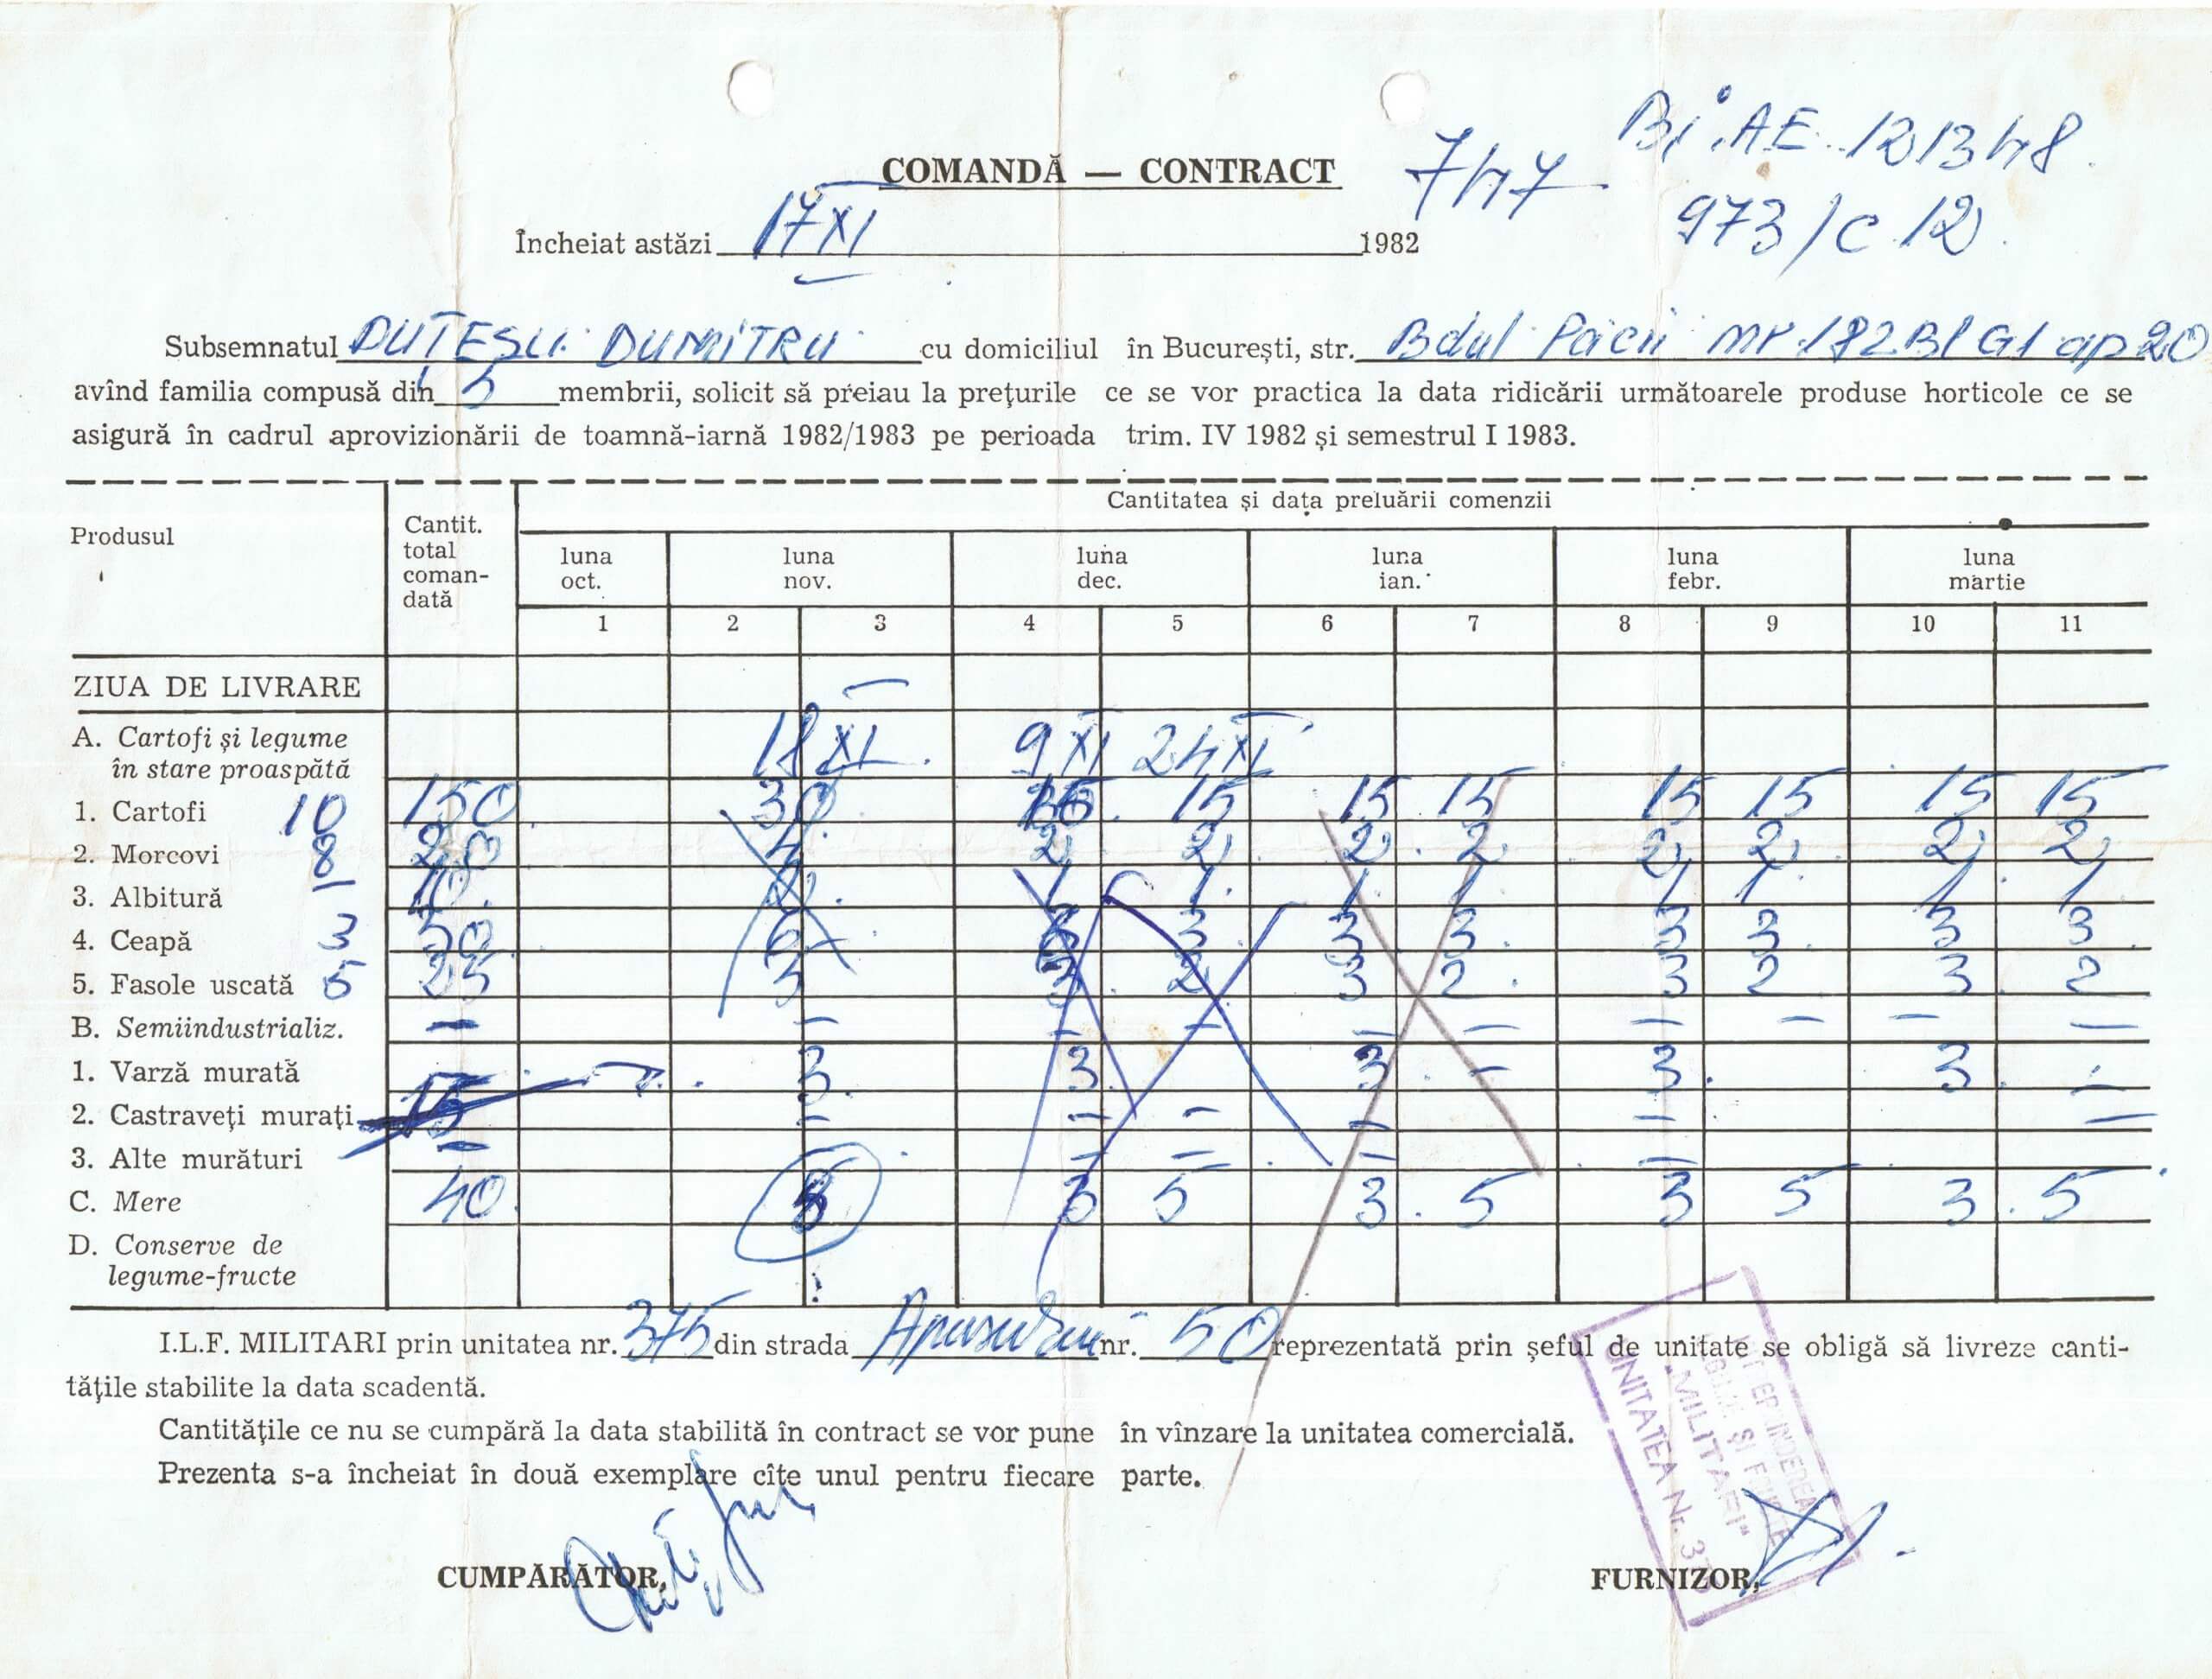 Bi. AE. 121348.
747
973/C 12.
COMANDĂ — CONTRACT
Încheiat astăzi 17 XI 1982
Subsemnatul DUȚESCU DUMITRU cu domiciliul în București, str. Bdul Păcii nr. 182 Bl G1 ap 20
avînd familia compusă din 5 membrii, solicit să preiau la prețurile ce se vor practica la data ridicării următoarele produse horticole ce se
asigură în cadrul aprovizionării de toamnă-iarnă 1982/1983 pe perioada trim. IV 1982 și semestrul I 1983.
Produsul
Cantit. total coman-dată
Cantitatea și data preluării comenzii
luna oct. luna nov. luna dec. luna ian. luna febr. luna martie
1 2 3 4 5 6 7 8 9 10 11
ZIUA DE LIVRARE
A. Cartofi și legume
în stare proaspătă 18 XI. 9 XI 24 XI
1. Cartofi 10 150 30 15 15 15 15 15 15 15
2. Morcovi 8 20 4 2 2 2 2 2 2 2 2
3. Albitură 10 2 1 1 1 1 1 1 1 1
4. Ceapă 3 30 6 3 3 3 3 3 3 3
5. Fasole uscată 5 25 3 3 2 3 2 3 2 3 2
B. Semiindustrializ. — — — — — — — — — —
1. Varză murată 3 3 3 — 3 3 —
2. Castraveți murați 15 — — — — — —
3. Alte murături — — — — — —
C. Mere 40 3 5 3 5 3 5 3 5
D. Conserve de
legume-fructe
I.L.F. MILITARI prin unitatea nr. 375 din strada nr. 50 reprezentată prin șeful de unitate se obligă să livreze canti-
tățile stabilite la data scadentă.
Cantitățile ce nu se cumpără la data stabilită în contract se vor pune în vînzare la unitatea comercială.
Prezenta s-a încheiat în două exemplare cîte unul pentru fiecare parte.
CUMPĂRĂTOR, FURNIZOR,
ȘI
"MILITARI"
UNITATEA Nr. 375